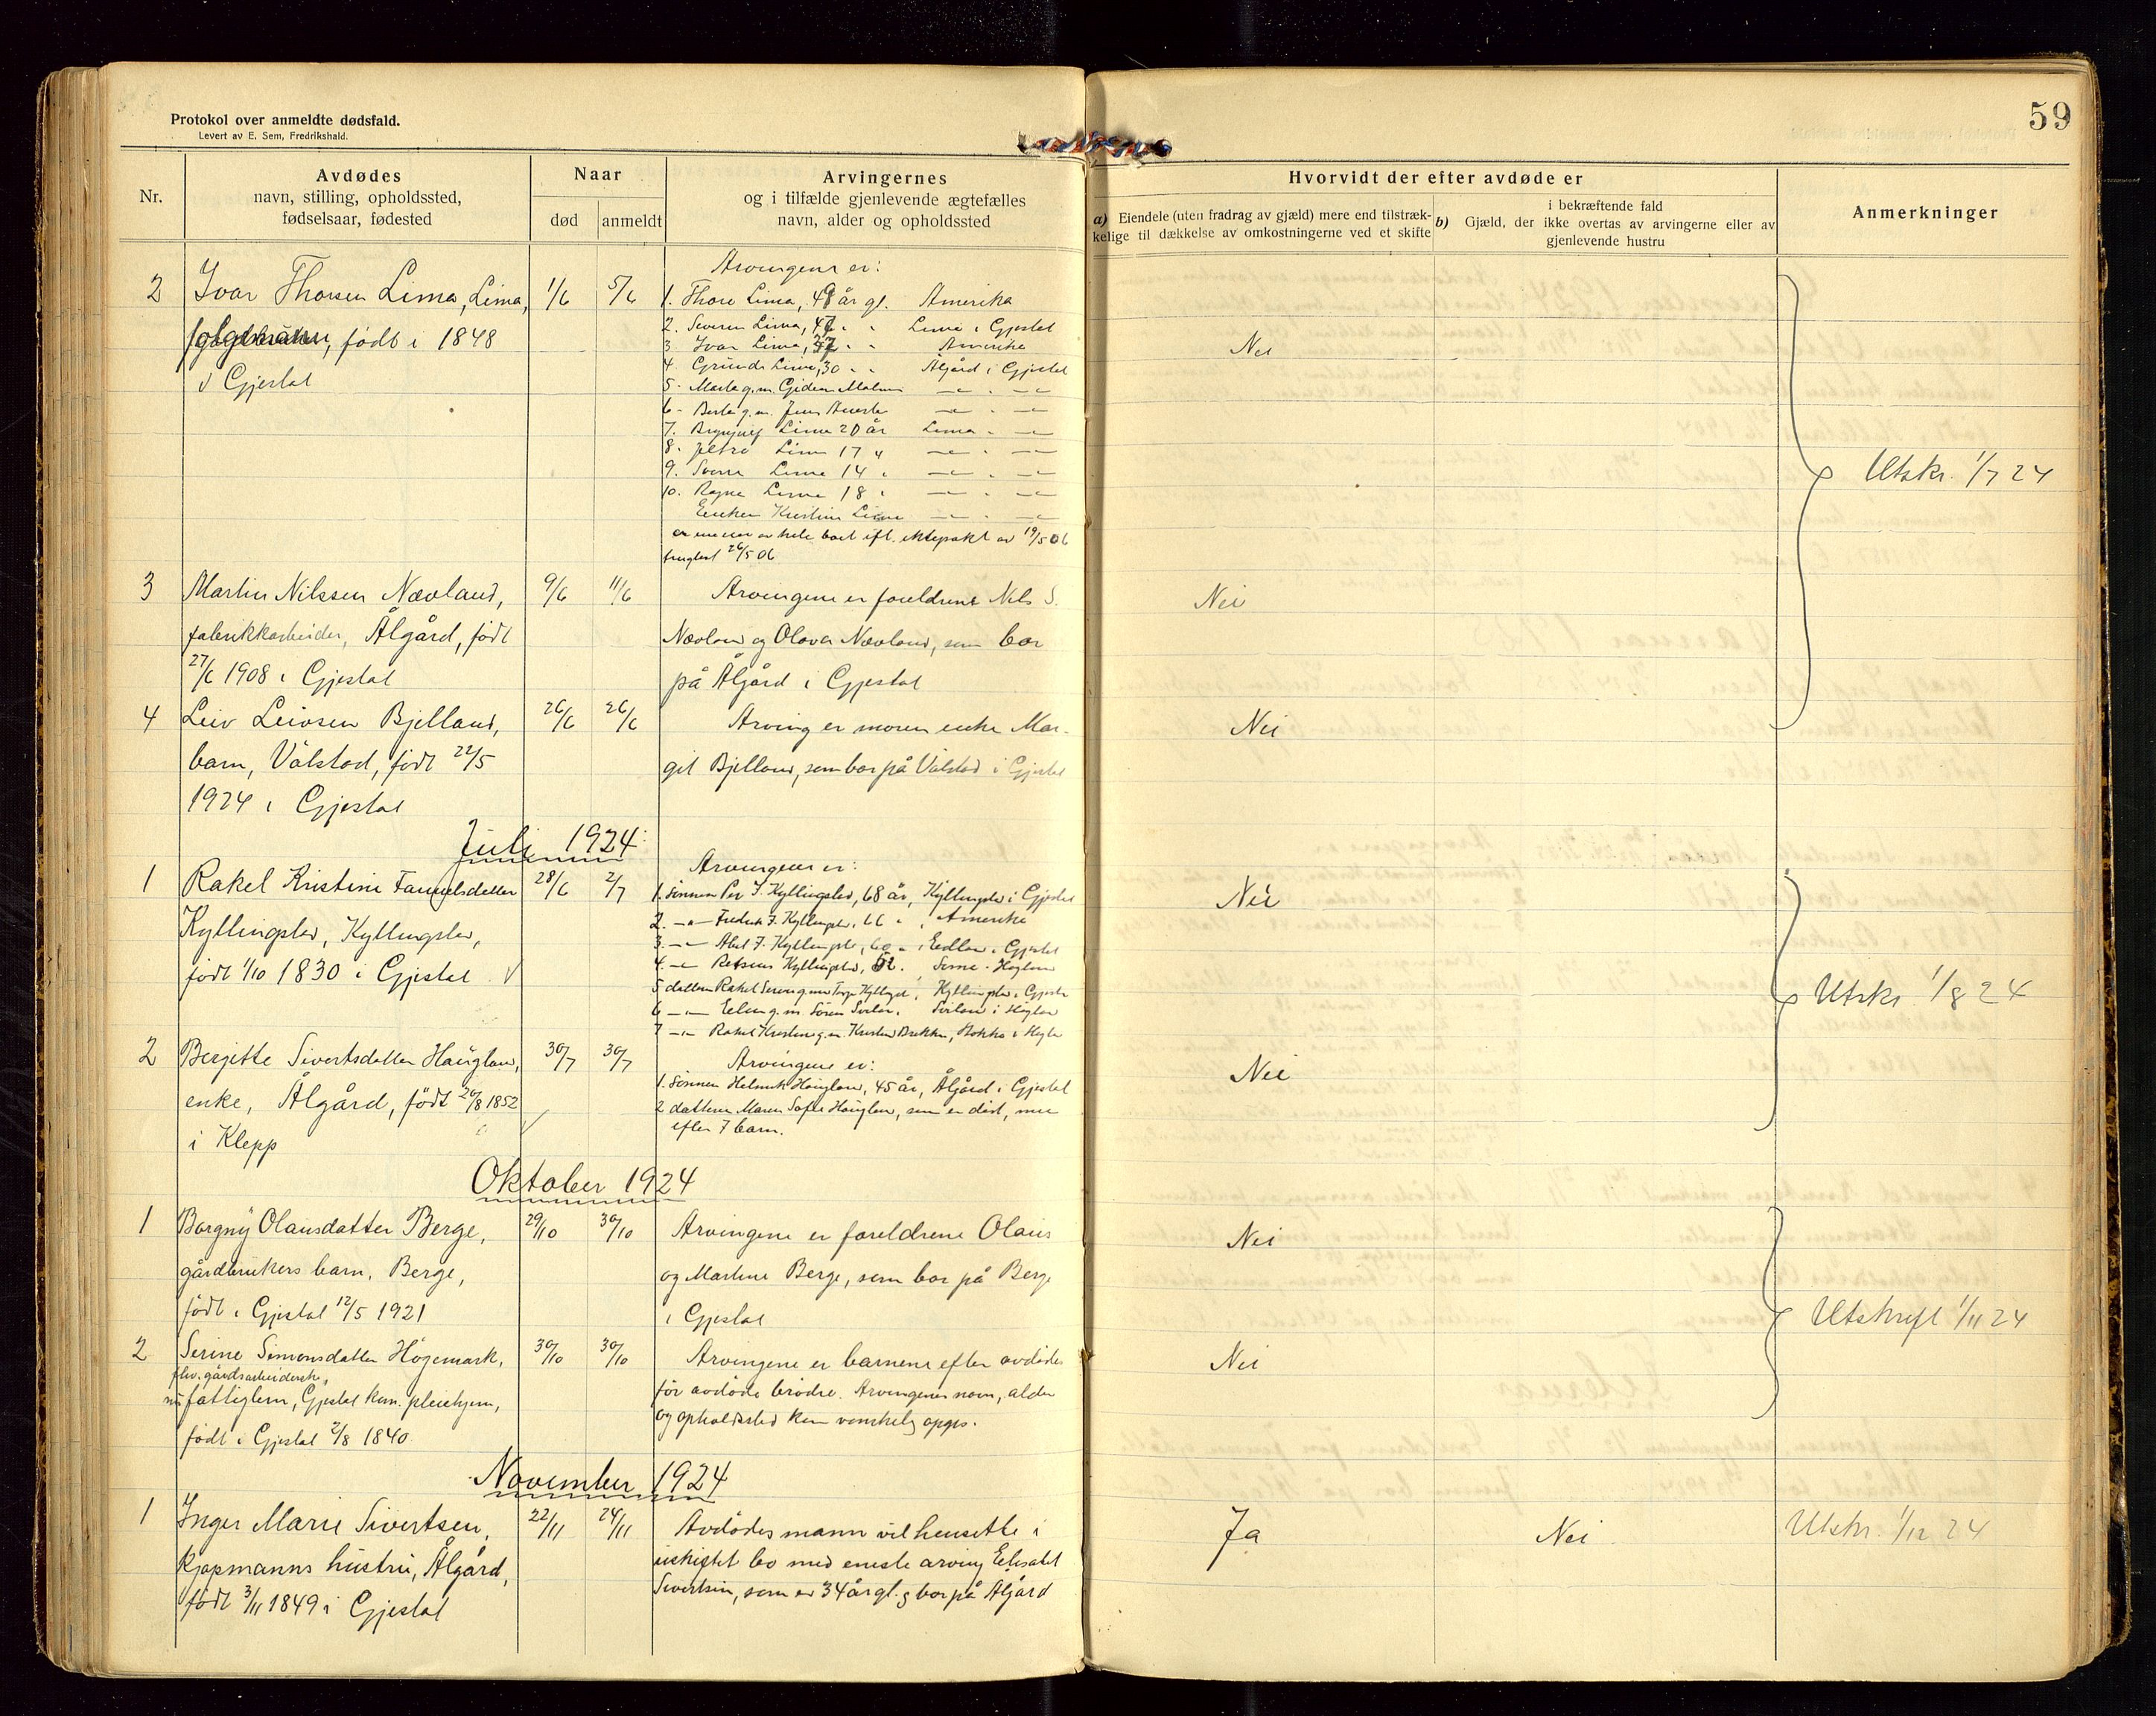 Protokol over anmeldte dødsfald.
Levert av E. Sem, Fredrikshald.
59
Nr.
Avdødes
navn, stilling, opholdssted,
fødselsaar, fødested
Naar
død
anmeldt
Arvingernes
og i tilfælde gjenlevende ægtefælles
navn, alder og opholdssted
Hvorvidt der efter avdøde er
a) Eiendele (uten fradrag av gjæld) mere end tilstræk-
kelige til dækkelse av omkostningerne ved et skifte
i bekræftende fald
b) Gjæld, der ikke overtas av arvingerne eller av
gjenlevende hustru
Anmerkninger
2
Ivar Thorsen Lima, Lima,
født i 1848
i Gjestal
1/6
5/6
Arvingene er:
1. Thore Lima, 49 år gl. Amerika
2. Severin Lima, 47 " " Lima i Gjestal
3. Ivar Lima, 37 " " Amerika
4. Lima, 30 " " Ålgård i Gjestal
5. Marta g.m. Gideon Malmin — " —
6. Berta g.m. Jens — " —
7. Lima 20 år Lima " —
8. Lima 17 " — " —
9. Sverre Lima 14 " — " —
10. Ragna Lima 18 " — " —
Enken Kristine Lima — " —
er eneeier av hele boet ifl. ektepakt av 19/5 06
tinglest 26/5 06
Nei
Utskr. 1/7 24
3
Martin Nilssen Nævland,
fabrikkarbeider, Ålgård, født
27/6 1908 i Gjestal
9/6
11/6
Arvingene er foreldrene Nils S.
Nævland og Olava Nævland, som bor
på Ålgård i Gjestal
Nei
4
Leiv Leivsen Bjelland,
barn, Vålstad, født 22/5
1924 i Gjestal
26/6
26/6
Arving er moren enke Mar-
git Bjelland, som bor på Vålstad i Gjestal
Nei
Juli 1924:
1
Rakel Kristine
Kyllingstad, Kyllingstad,
født 1/10 1830 i Gjestal
28/6
2/7
Arvingene er:
1. sønnen Per J. Kyllingstad, 68 år, Kyllingstad i Gjestal
2. —"— Fredrik J. Kyllingstad, 66 " , Amerika
3. —"— Abel J. Kyllingstad, 60 " , i Gjestal
4. —"— Kyllingstad, 52 " , i Høyland
5 datteren Rakel Serine g.m. Kyllingstad, Kyllingstad i Gjestal
6 —"— Elen g.m. Sören Sviland, Sviland i Høyland
7 —"— Rakel Kristine g.m. Kristen Brekke, Stokka i Høyland
Nei
Utskr. 1/8 24
2
Bergitte Sivertsdatter Haugland,
enke, Ålgård, født 26/8 1852
i Klepp
30/7
30/7
Arvingene er:
1. sønnen Helmik Haugland, 45 år, Ålgård i Gjestal
2 datteren Maren Sofie Haugland, som er död, men
efter 7 barn.
Nei
Oktober 1924
1
Borgny Olausdatter Berge,
gårdbrukers barn, Berge,
født i Gjestal 12/5 1921
29/10
30/10
Arvingene er foreldrene Olaus
og Martine Berge, som bor på Berge
i Gjestal
Nei
Utskrift 1/11 24
2
Serine Simonsdatter Högemark,
fhv. gårdsarbeiderske,
nu fattiglem, Gjestal kom. pleiehjem,
født i Gjestal 2/8 1840
30/10
30/10
Arvingene er barnene efter avdödes
för avdöde brödre. Arvingenes navn, alder
og opholdssted kan vanskelig opgis.
Nei
November 1924
1
Inger Marie Sivertsen,
kjøpmanns hustru, Ålgård,
født 3/11 1849 i Gjestal
22/11
24/11
Avdödes mann vil hensitte i
uskiftet bo med eneste arving Elisabet
Sivertsen, som er 34 år gl. og bor på Ålgård
Ja
Nei
Utskr. 1/12 24